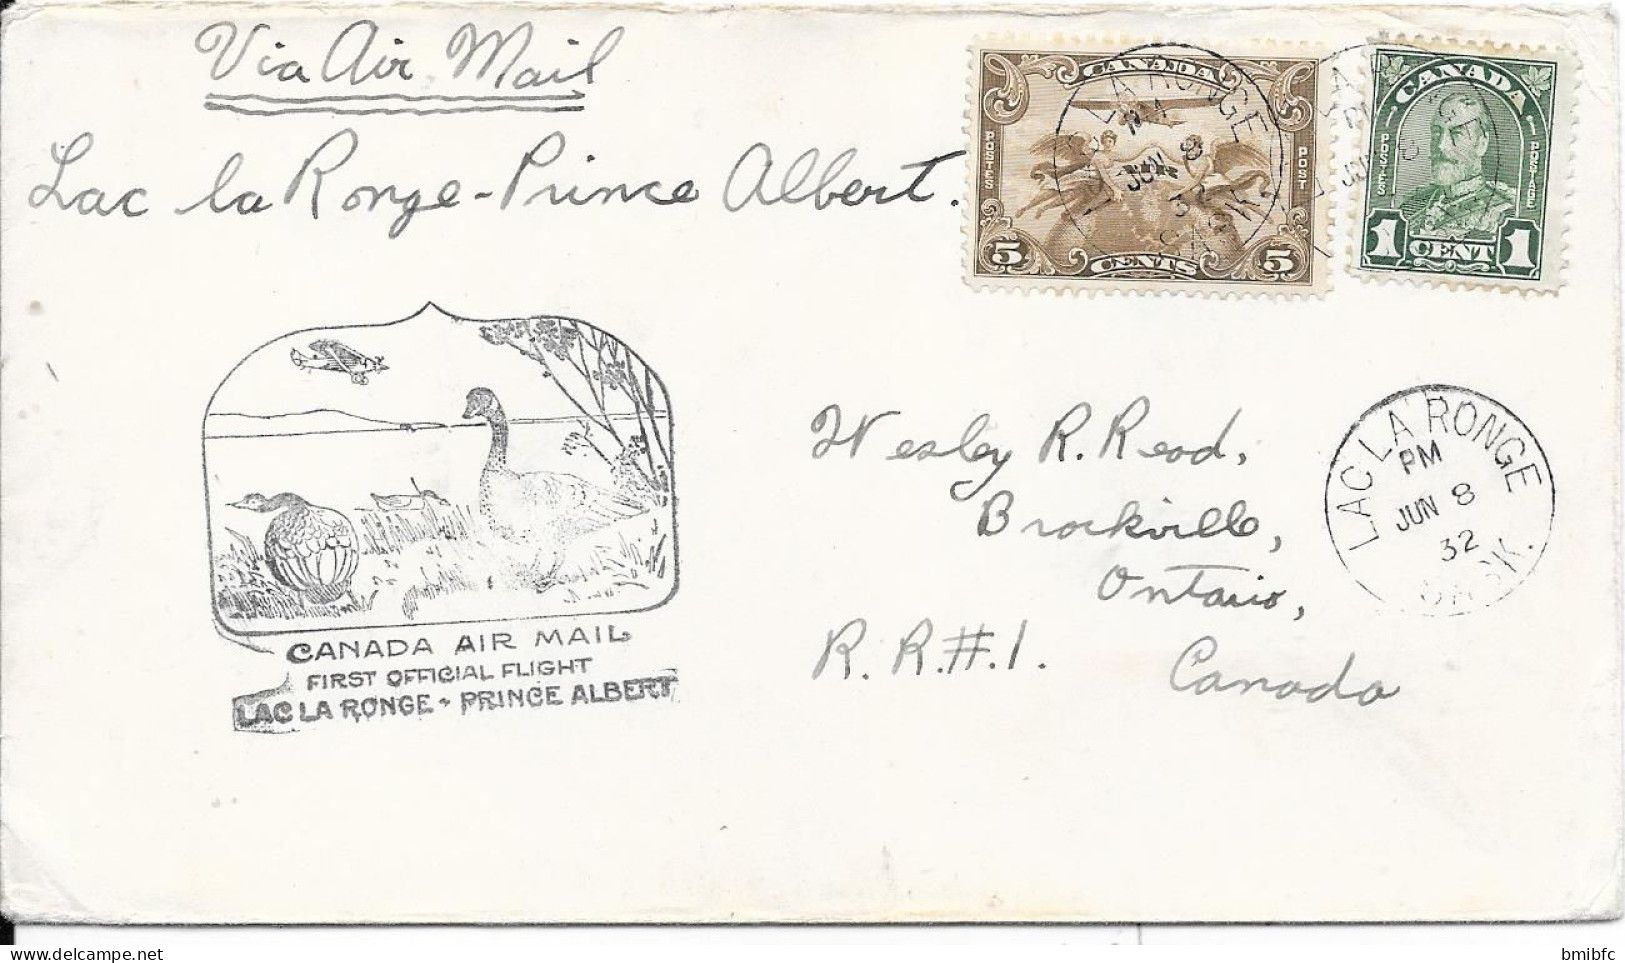 Via Air Mail
Lac la Ronge-Prince Albert.
CANADA
POSTES POST
5 CENTS 5
CANADA
POSTES POSTAGE
1 CENT 1
LAC LA RONGE
PM
JUN 8
32
SASK.
CANADA AIR MAIL
FIRST OFFICIAL FLIGHT
LAC LA RONGE - PRINCE ALBERT
Wesley R. Read,
Brockville,
Ontario,
R. R. #. 1. Canada
LAC LA RONGE
PM
JUN 8
32
SASK.
bmibfc